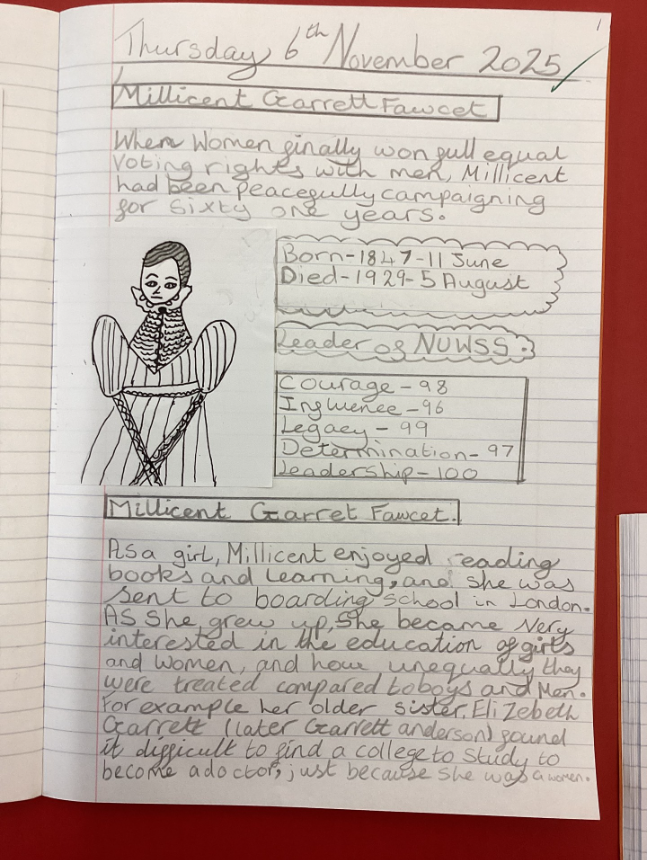 1
Thursday 6th November 2025
Millicent Garrett Fawcet
When Women finally won full equal
voting rights with men, Millicent
had been peacefully campaigning
for sixty one years.
Born-1847-11 June
Died-1929-5 August
Leader of NUWSS.
Courage-98
Influence-96
Legacy-99
Determination-97
Leadership-100
Millicent Garret Fawcet.
As a girl, Millicent enjoyed reading
books and learning, and she was
sent to boarding school in London.
As She grew up, She became Very
interested in the education of girls
and women, and how unequally they
were treated compared to boys and Men.
For example her older sister, Elizebeth
Garrett (later Garrett anderson) found
it difficult to find a college to study to
become a doctor, just because she was a women.